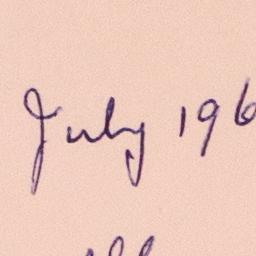 July 196